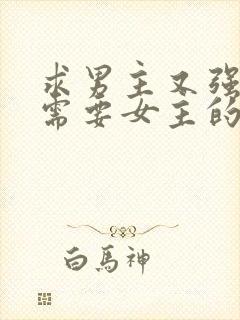 求男主又强
需要女主的
白馬神